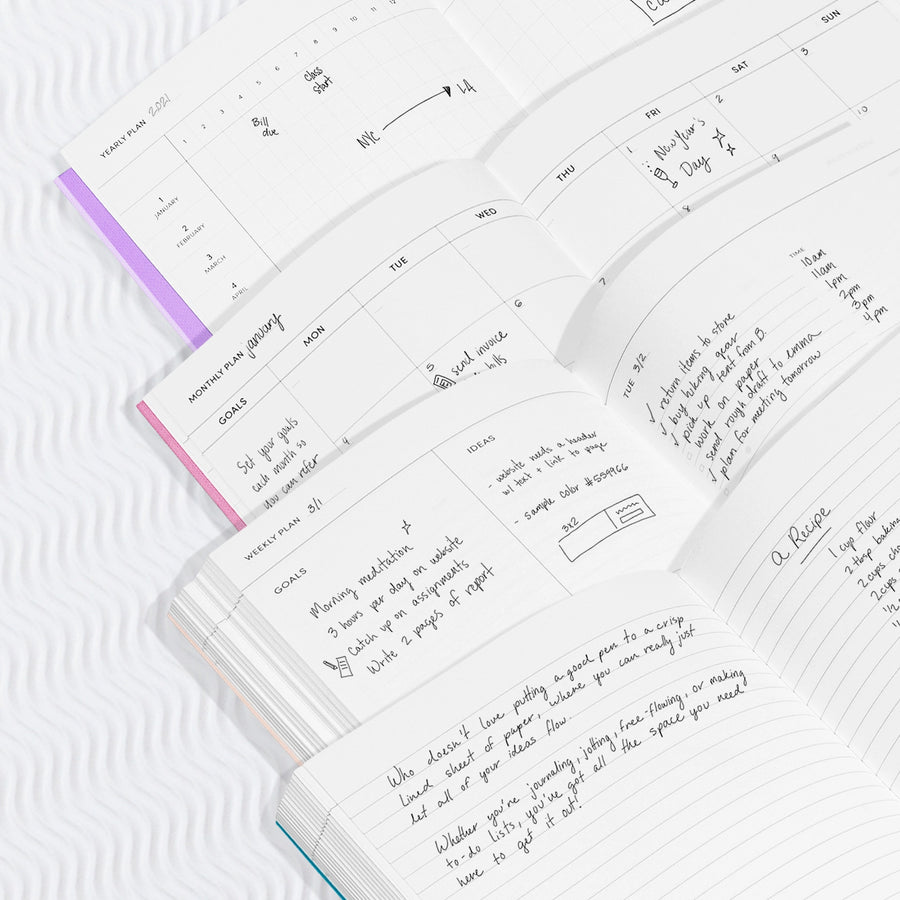 YEARLY PLAN 2021
1 2 3 4 5 6 7 8 9 10 11 12
Bill
due
Class
start
NYC
LA
1
JANUARY
2
FEBRUARY
3
MARCH
4
APRIL
MONTHLY PLAN January
GOALS
MON
TUE
WED
THU
FRI
SAT
SUN
1
2
3
New Year's
Day
4
5
6
7
8
9
10
send invoice
bills
Set your goals
each month so
you can refer
WEEKLY PLAN 3/1
GOALS
Morning meditation
3 hours per day on website
Catch up on assignments
Write 2 pages of report
IDEAS
- website needs a header
w/ text + link to page
- sample color #559966
3x2
TUE 3/2
TIME
return items to store 10am
buy hiking gear 11am
pick up tent from B. 1pm
work on paper 2pm
send rough draft to emma 3pm
plan for meeting tomorrow 4pm
Who doesn't love putting a good pen to a crisp
lined sheet of paper, where you can really just
let all of your ideas flow.
Whether you're journaling, jotting, free-flowing, or making
to-do lists, you've got all the space you need
here to get it out!
A Recipe
1 cup flour
2 tbsp baking
2 cups
2 cups
1/2